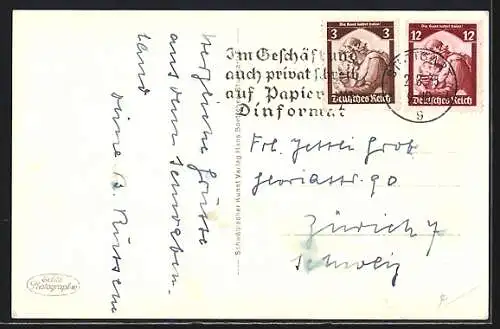 Herzliche Grüsse
aus dem Schwaben-
land
Deine B.
Echte
Photographie
Schwäbischer Kunst Verlag Hans
Im Geschäft und
auch privat schreib
auf Papier
Dinformat
Die Saar kehrt heim!
3 3
Deutsches Reich
Die Saar kehrt heim!
12 12
Deutsches Reich
g
Frl.
Gloriastr. 90
Zürich 7
Schweiz